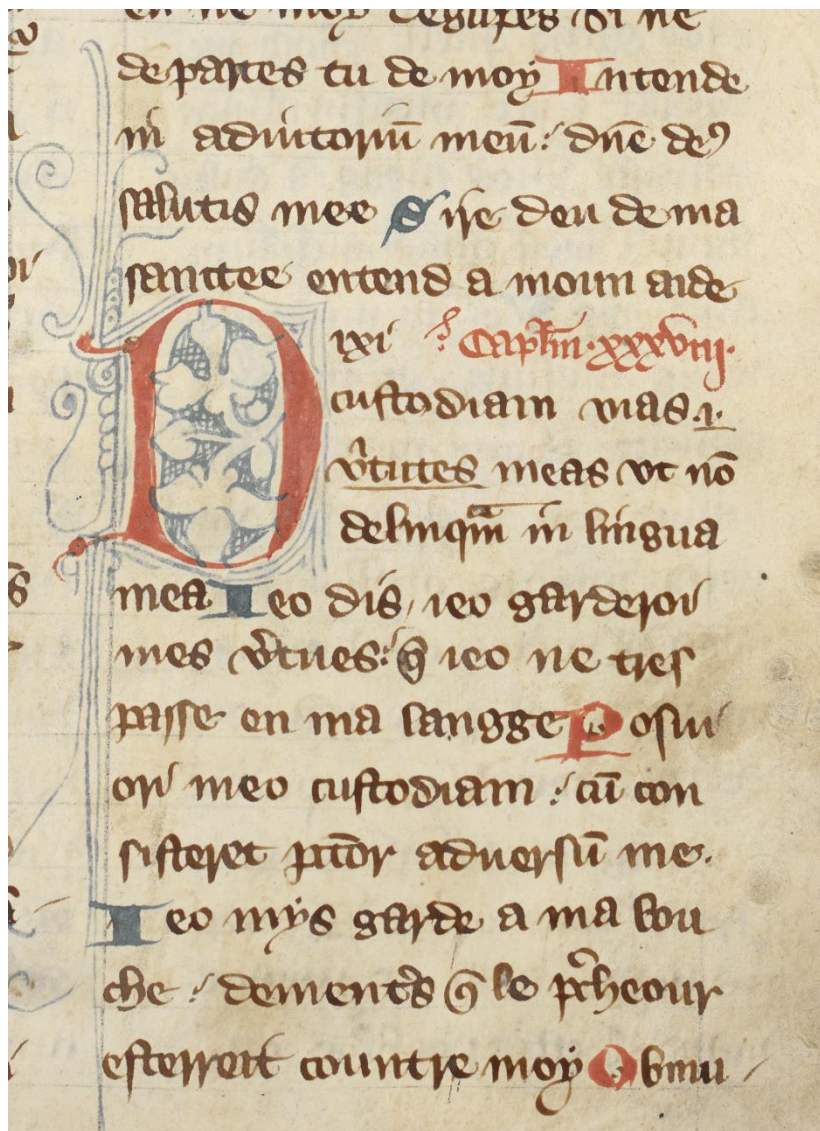 en ne moy degupes si ne
departes tu de moy Intende
in adiutoriũ meũ : dñe deꝰ
salutis mee Sire deu de ma
sanctee entend a moun aide
Dixi : Capłm · xxxviij ·
custodiam vias .i.
v̾tutes meas vt nõ
delinquã in lingua
mea Ieo dis / ieo garderoi
mes v̾tues : q̃ ieo ne tres
passe en ma langge Posui
ori meo custodiam : cũ con
sisteret pctõr aduersũ me .
Ieo mys garde a ma bou
che : dement̾s q̃ le p̾cheour
esterreit countre moy Obmu